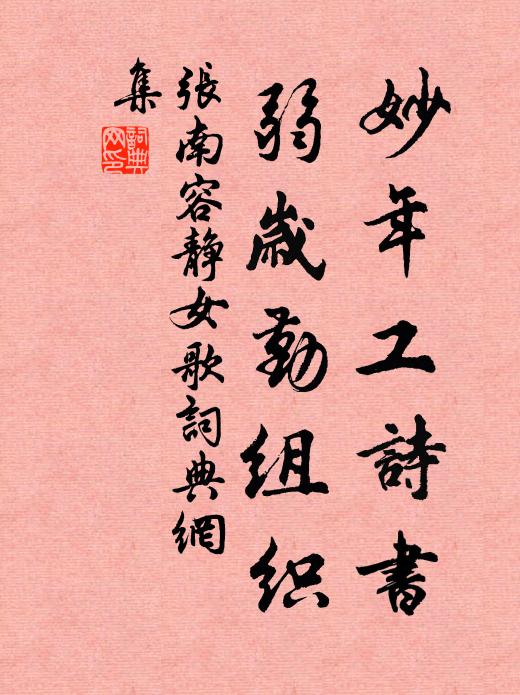 妙年工詩書
弱歲勤組织
張南容静女歌詞典網
集
詞典
网印